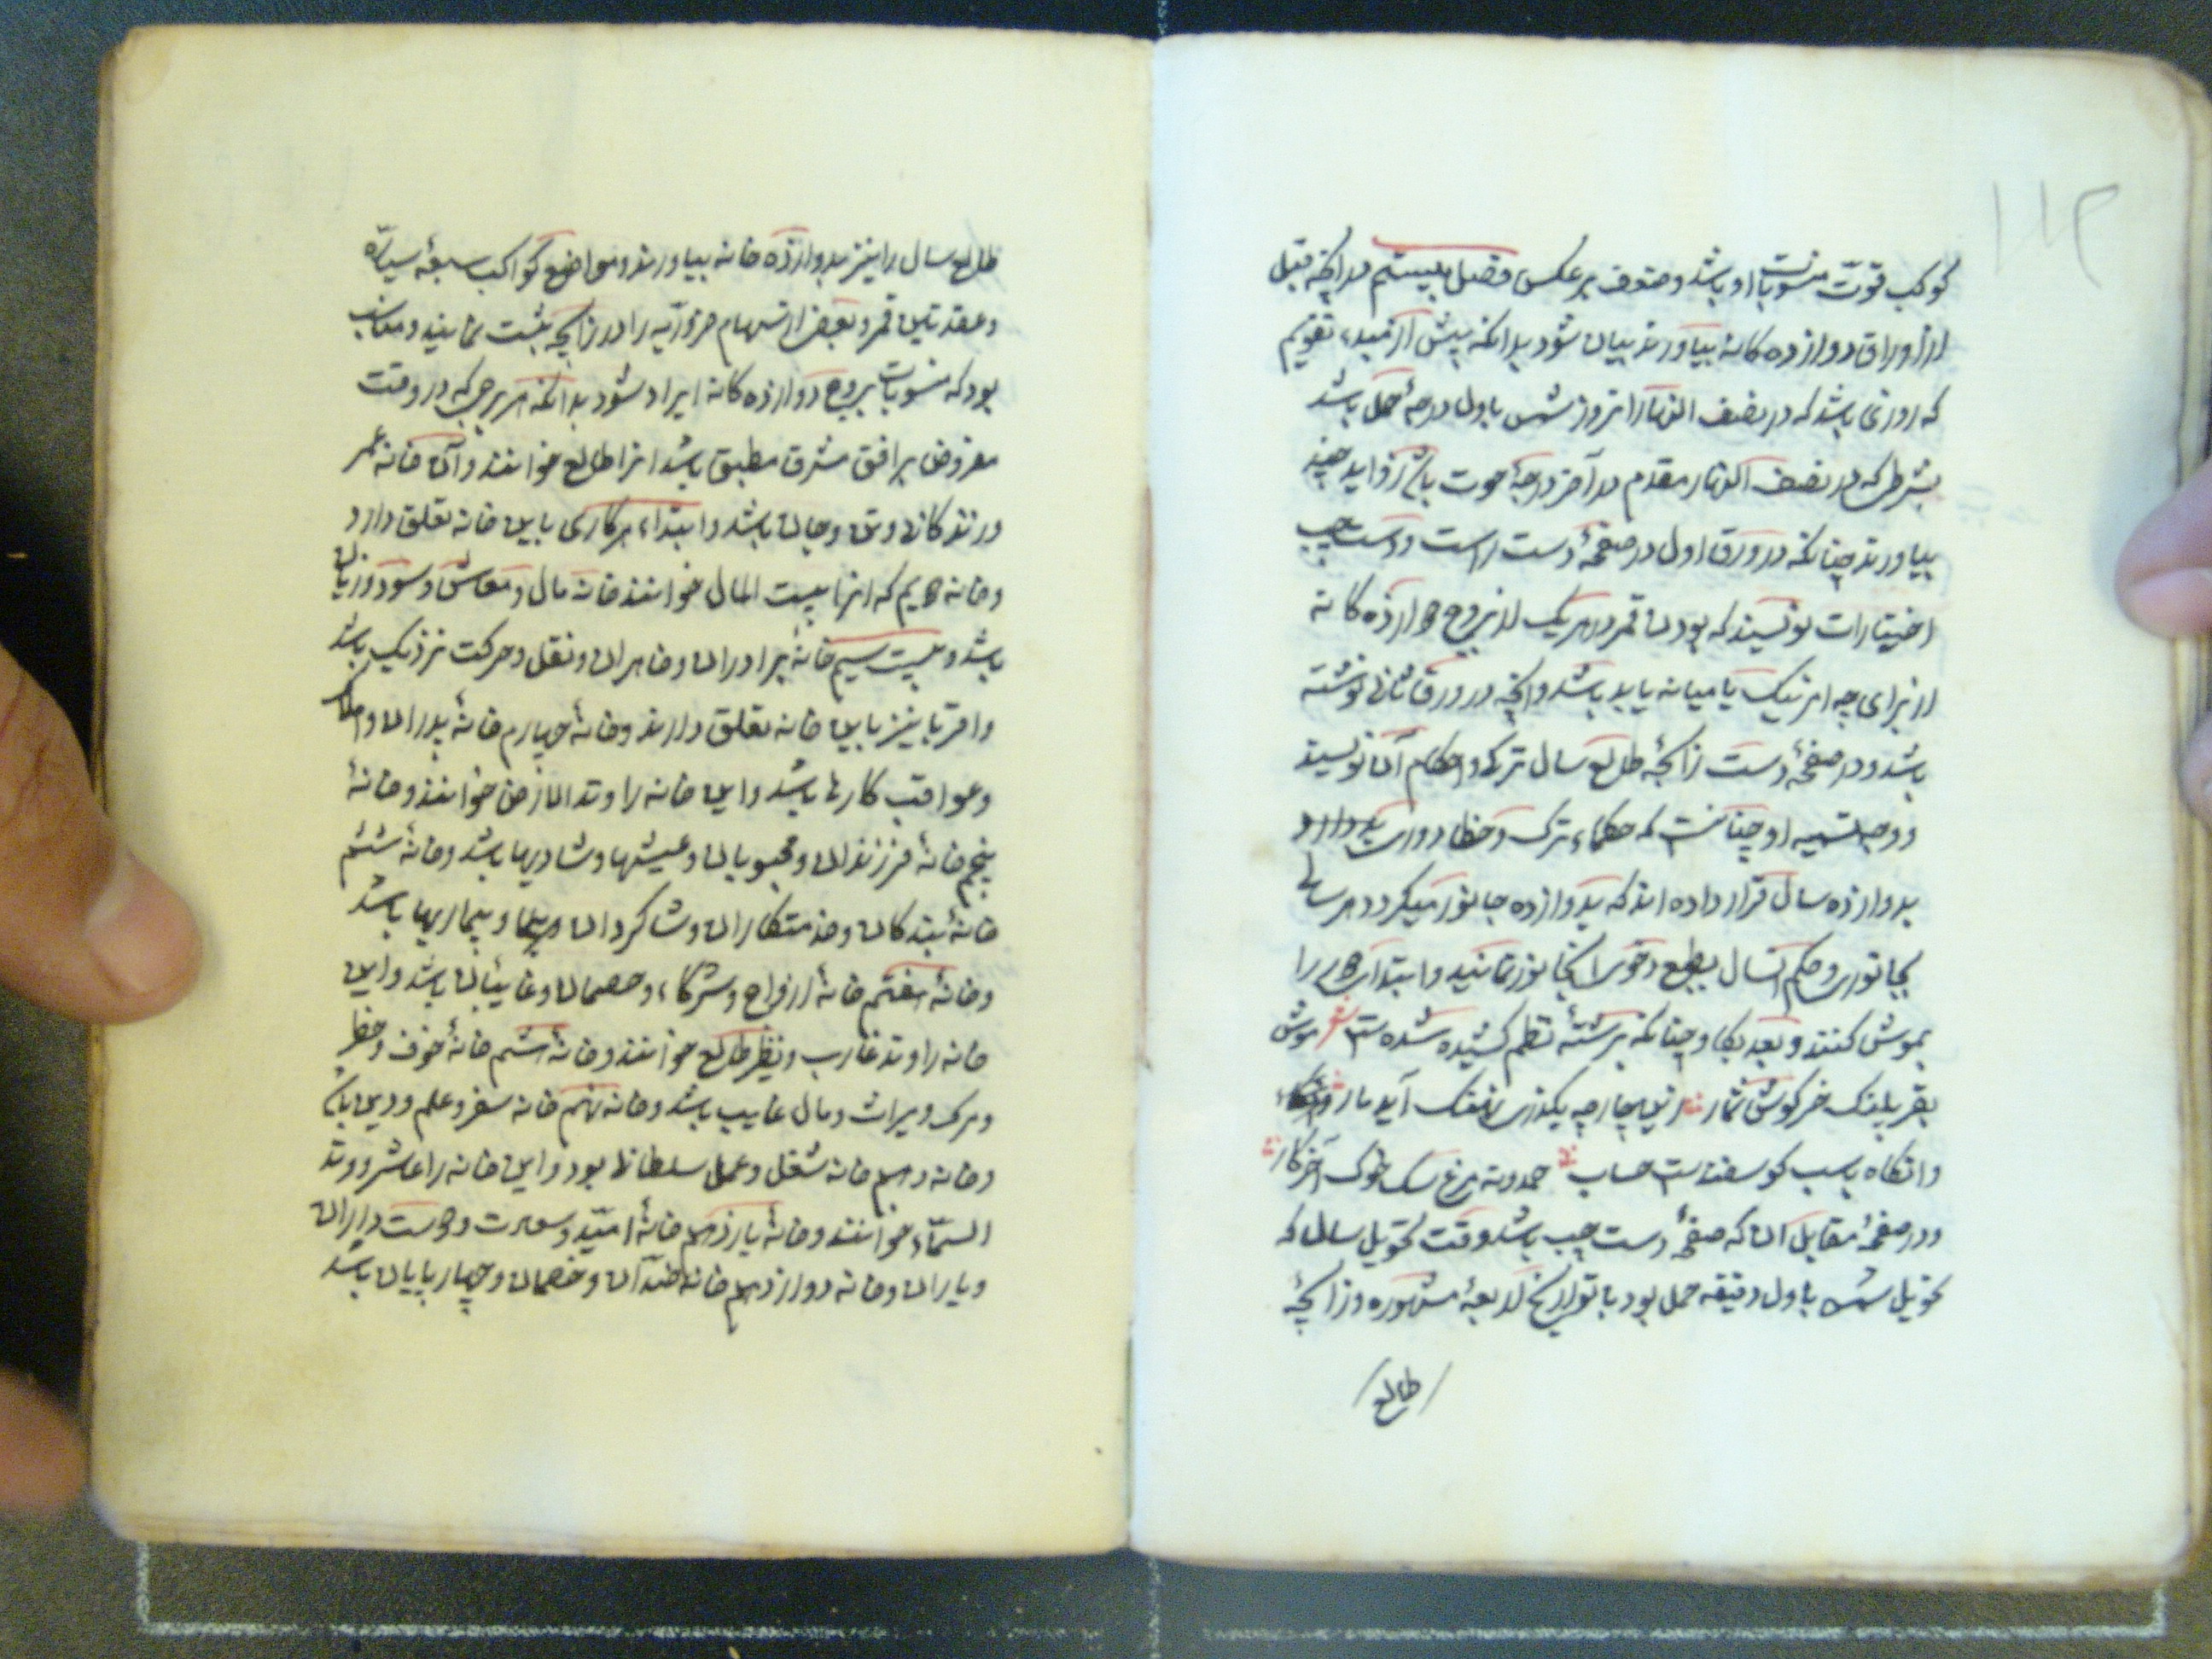 ۱۱۴
کوکب قوت منسوبات او باشد وضعف برعکس فصل بیستم در انچه قبل
از اوراق دوازده کانه بیاورند بیان شود بدانکه پیش از مبدء تقویم
که روزی باشد که در نصف النهار انروز شمس باول درجهٔ حمل باشد
بشرطی که در نصف النهار مقدم در آخر درجهٔ حوت باشد زواید چند
بیاورند چنانکه در ورق اول در صفحهٔ دست راست ودست چپ
اختیارات نویسند که بودن قمر در هریک از بروج دوازده کانه
از برای چه امر نیک یا میانه یا بد باشد وانچه در ورق ثانی نوشته
باشد ودر صفحهٔ دست زایجهٔ طالع سال ترک واحکام آن نویسند
ووجه تسمیه او چنانست که حکماء ترک وخطا دوری بد دارد
بدوازده سال قرار داده اند که بدوازده جانور میکردد هر سالی
بجانوری وحکم آنسال بطبع وخوی انجانور نمایند وابتدای دور را
بموش کنند وبعد بکاو چنانکه برشتهٔ نظم کشیده شده ست شعر موش
بقر پلنک خرکوش شمار زین چار چه بکذری نهنک آید مار
وانکاه باسب کوسفندست حساب حمدونه مرغ سک خوک آخر کار
ودر صفحهٔ مقابل آن که صفحهٔ دست چپ باشد وقت تحویل سال که
تحویل شمس باول دقیقه حمل بود با تواریخ اربعهٔ مشهوره وزایجهٔ
طالع
طالع سال را نیز بدوازده خانه بیاورند ومواضع کواکب سبعهٔ سیاره
وعقدتین قمر وبعض از سهام ضروریه را در زایجه ثبت نمایند ومناسب
بود که منسوبات بروج دوازده کانه ایراد شود بدانکه هر برجی که در وقت
مفروض برافق مشرق منطبق باشد انرا طالع خوانند وآن خانه عمر
وزندکانی وتن وجان باشد وابتداء هر کاری باین خانه تعلق دارد
وخانه دویم که انرا بیت المال خوانند خانه مال ومعاش وسود وزیان
باشد وبیت سیم خانهٔ برادران وخاهران ونقل وحرکت نزدیک باشد
واقربا نیز باین خانه تعلق دارند وخانهٔ چهارم خانهٔ پدران واملاک
وعواقب کارها باشد واین خانه را وتد الارض خوانند وخانهٔ
پنجم خانهٔ فرزندان ومحبوبان وعیشها وشادیها باشد وخانهٔ ششم
خانهٔ بندکان وخدمتکاران وشاکردان وبیماریها باشد
وخانهٔ هفتم خانهٔ ازواج وشرکاء وخصمان وغایبان باشد واین
خانه را وتد غارب ونظیر طالع خوانند وخانهٔ هشتم خانهٔ خوف وخطر
ومرک ومیراث ومال غایب باشد وخانه نهم خانه سفر وعلم ودین باشد
وخانه دهم خانه شغل وعمل سلطانی بود واین خانه را عاشر ووتد
السماء خوانند وخانهٔ یازدهم خانهٔ امید وسعادت ودوست داران
ویاران وخانه دوازدهم خانه ضدان وخصمان وچهارپایان باشد